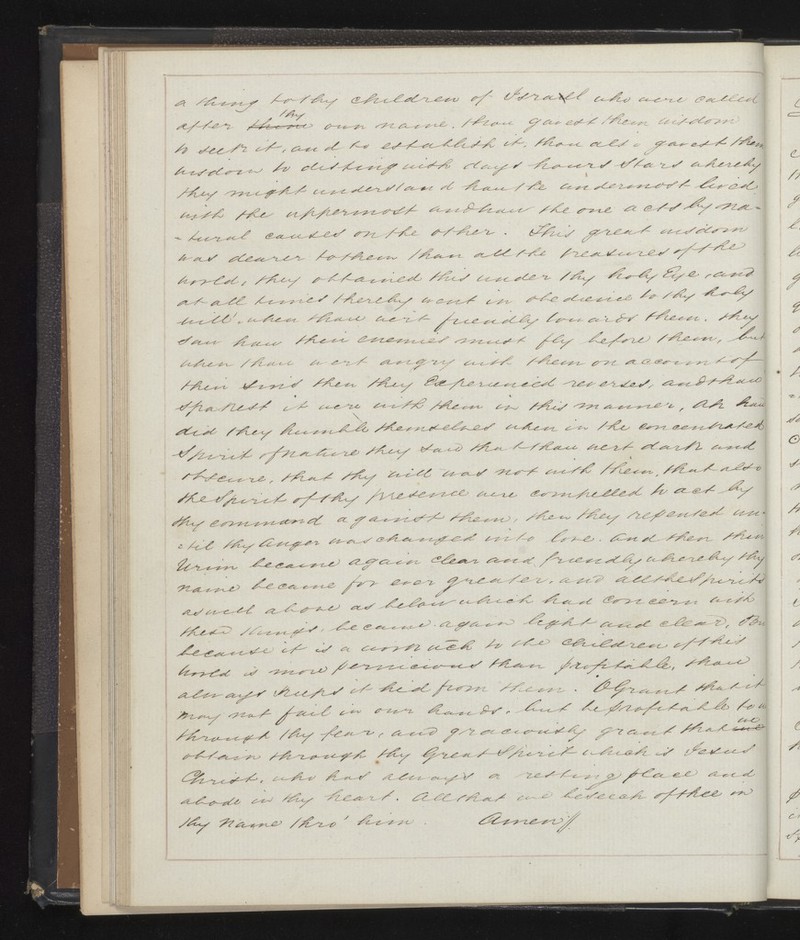 a thing to thy children of Israel who were called
thy
after own name. thou gavest them wisdom
to seek it, and to establish it. thou also gavest them
wisdom to distinguish days hours Stars whereby
they might understand how the undermost lived
with the uppermost and how the one acts by na-
-tural causes on the other. This great wisdom
was dearer to them than all the treasures of the
world, they obtained this under thy holy Eye, and
at all times thereby went in obedience to thy holy
will. when thou wert friendly towards them. they
saw how their enemies must fly before them, but
when thou wert angry with them on account of
their sins then they Experienced reverses, and thou
spakest it were with them in this manner, Ah how
did they humble themselves when in the concentrated
Spirit of nature they saw that thou wert dark and
obscure, that thy will was not with them, that also
the Spirit of thy presence were compelled to act by
thy command against them, then they repented un-
-til thy Anger was changed into love. and then their
Urim became again clear and friendly whereby thy
name became for ever greater. and all the Spirits
as well above as below which had concern with
these things. became again light and clear, But
because it is a work uch to the children of this
world is more pernicious than profitable, thou
always keeps it hid from them. O Grant that it
may not fail in our hands. but be profitable to us
through thy fear, and graciously grant that
we
obtain through thy Great Spirit which is Jesus
Christ. who has always a resting place and
abode in thy heart. All that we beseech of thee in
thy name thro' him. Amen